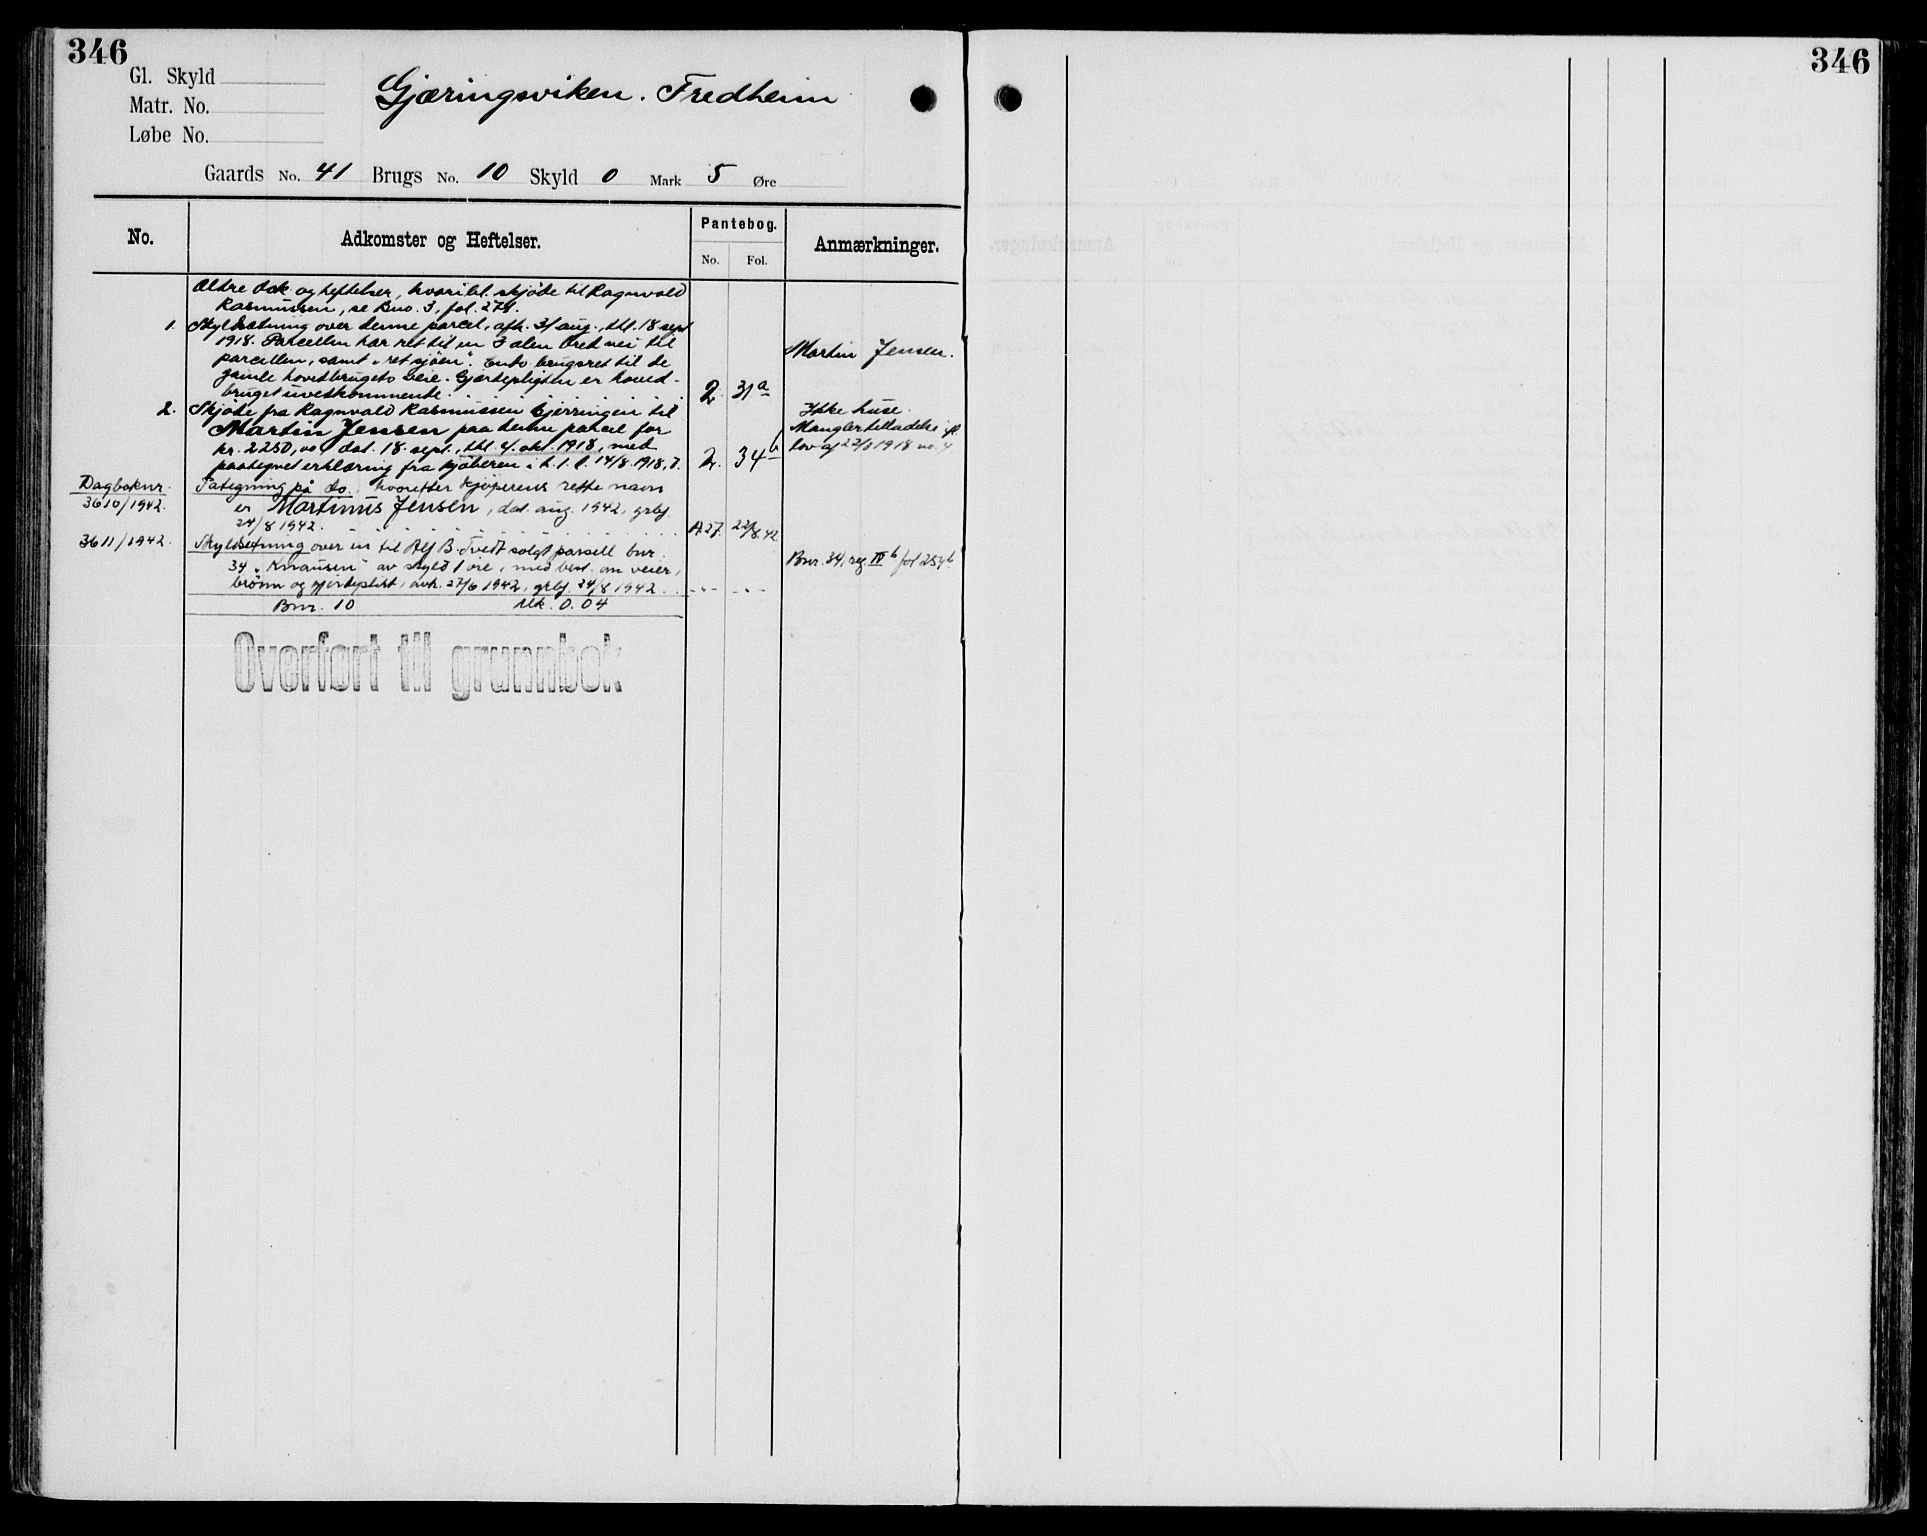 346
Gl. Skyld
Matr. No.
Løbe No.
Gjæringsviken. Fredheim
Gaards No. 41 Brugs No. 10 Skyld 0 Mark 5 Øre
No.
Adkomster og Heftelser.
Pantebog.
No. Fol.
Anmærkninger.
Ældre dok. og heftelser, hvoribl. skjøde til Ragnvald
Rasmussen, se Bno. 3, fol. 274.
1. Skyldsætning over denne parcel, afh. 31 aug., thl. 18 sept
1918. Parcellen har ret til en 3 alen bred vei til
parcellen, samt „ret sjöen". Endv. brugsret til de
gamle hovedbrugets veie. Gjærdepligten er hoved-
bruget uvedkommende. 2. 31a
Martin Jensen.
2. Skjøde fra Ragnvald Rasmussen Gjerringen til
Martin Jensen paa denne parcel for
kr. 2250,00 dat. 18. sept., thl. 4. okt. 1918, med
paategnet erklæring fra kjøberen i h. t. l. 14/8. 1918, 7. 2. 34b
Ikke huse.
Mangler tilladelse
lov af 1918 no 4
Dagboknr.
3610/1942.
Påtegning på do. hvoretter kjøperens rette navn
er Martinus Jensen, dat. aug. 1942, grbf.
24/8 1942. A27. 22/8.42
3611/1942. Skyldsetning over en til Alf B. Tvedt solgt parsell bnr.
34 „Knausen" av skyld 1 øre, med best. om veier,
brønn og gjerdeplikt, avh. 27/6 1942, grbf. 24/8 1942. -"- -"-
Bnr. 34, reg. IV b fol 254b
Bnr. 10 Mk. 0.04
Overført til grunnbok
346